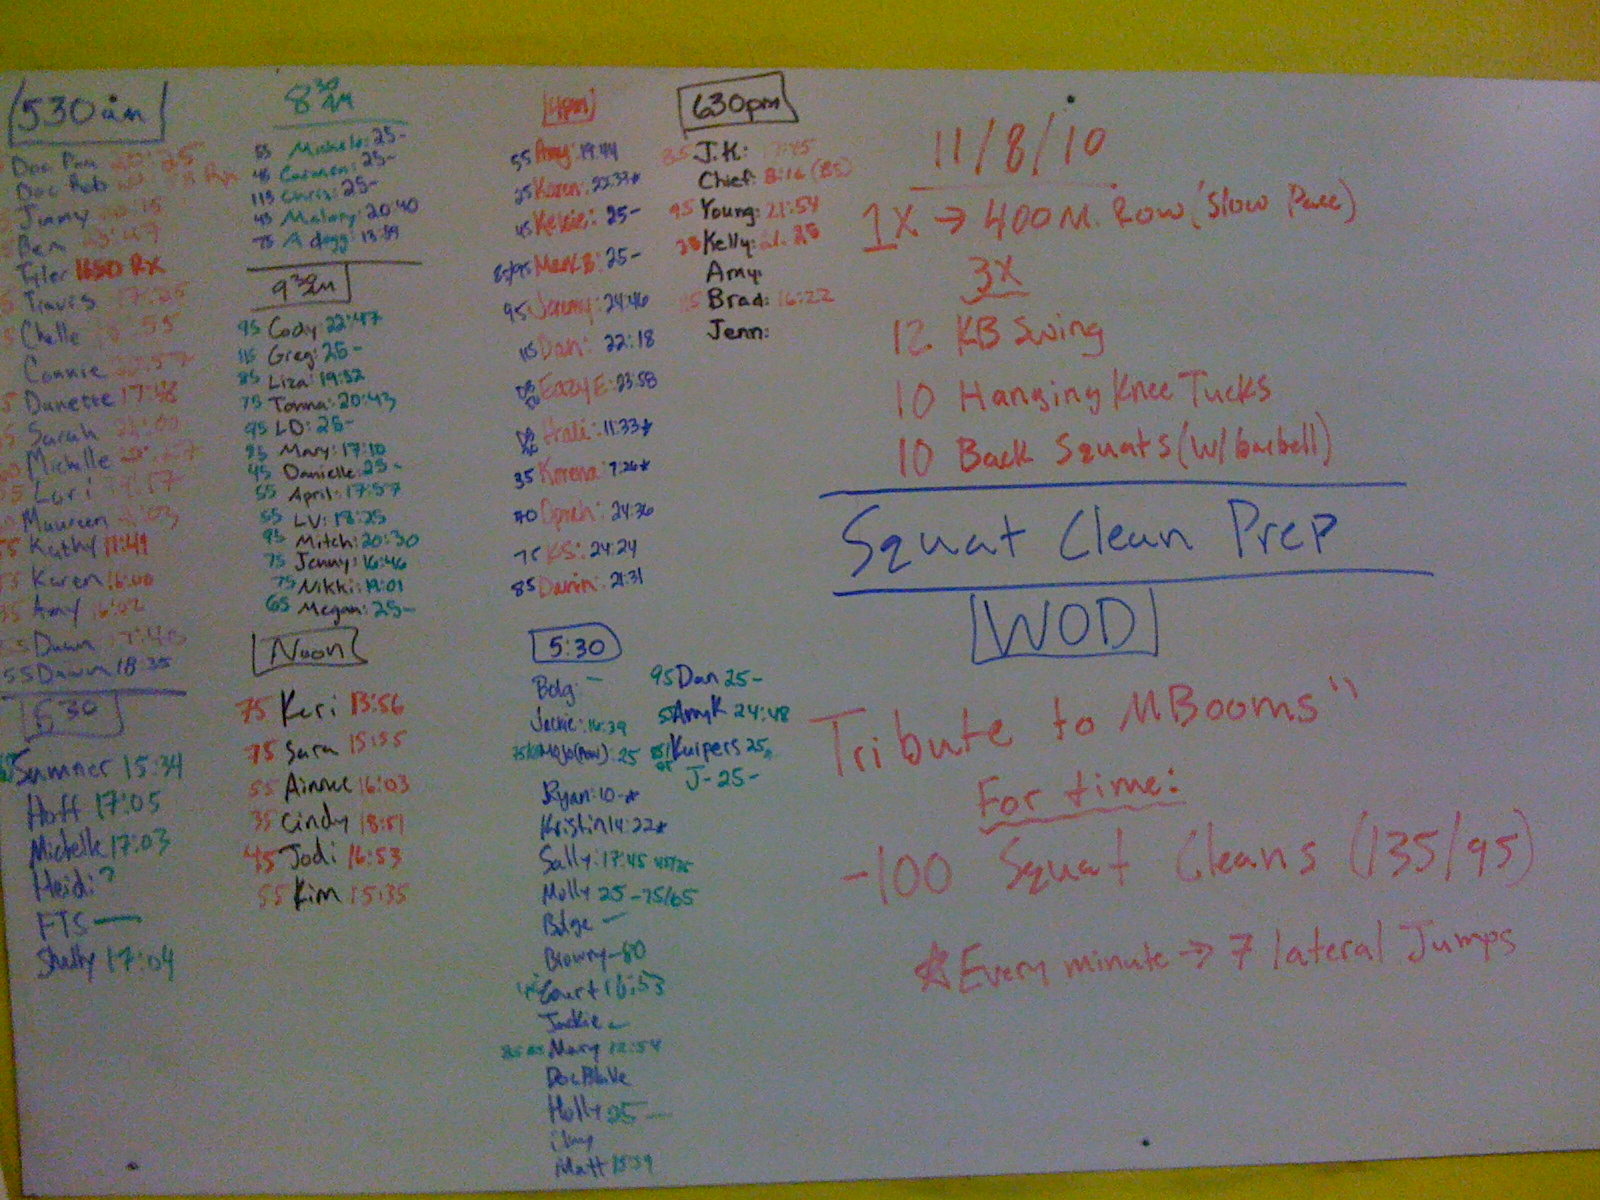 530am
Doc Pam 20:25
Doc Rob
Jimmy
Ben
Tyler 1650 RX
Travis 17:25
Chelle
Connie
Danette 17:48
Sarah
Michelle
Lori
Maureen
Kathy 11:49
Karen 16:40
Amy 16:02
Dawn 17:46
55 Dawn 18:35
530
Sumner 15:34
Hoff 17:05
Michelle 17:03
Heidi ?
FTS —
Shelly 17:04
8 30 AM
55 Michele: 25-
45 Carmen: 25-
113 Chris: 25-
45 Malory: 20:40
75 A dogg: 13:59
9 30 AM
95 Cody: 22:47
115 Greg: 25-
85 Liza: 19:52
75 Tonna: 20:43
95 LD: 25-
95 Mary: 17:10
45 Danielle: 25-
55 April: 17:57
55 LV: 18:25
95 Mitch: 20:30
75 Jenny: 16:46
75 Nikki: 19:01
65 Megan: 25-
Noon
75 Keri 13:56
75 Sara 15:55
55 Aimee 16:03
35 Cindy 18:51
45 Jodi 16:53
55 Kim 15:35
4pm
55 Amy: 19:44
25 Karen: 22:33*
45 Kelsie: 25-
85/95 Mark B: 25-
95 Jeremy: 24:46
115 Dan: 22:18
Eazy E: 23:58
Hali: 11:33*
35 Korena: 7:26*
70 Oprah: 24:36
75 KS: 24:24
85 Darin: 21:31
5:30
Bdg: —
Jackie: 16:39
Mojo (Row): 25
Ryan: 10-*
Kristin 14:22*
Sally: 17:45 45/35
Molly 25 -75/65
Bdge —
Browny-80
Court 16:53
Jackie -
Mary 12:54
Doc Blake
Holly 25 —
Matt 15:39
95 Dan 25-
55 Amy K 24:48
Kuipers 25
J- 25-
630pm
J.K: 17:45
Chief: 8:16 (85)
95 Young: 21:54
Kelly: 21:28
Amy:
Brad: 16:22
Jenn:
11/8/10
1X → 400 M. Row (Slow Pace)
3X
12 KB Swing
10 Hanging Knee Tucks
10 Back Squats (w/barbell)
Squat Clean Prep
WOD
Tribute to MBooms"
For time:
-100 Squat Cleans (135/95)
☆ Every minute → 7 lateral Jumps